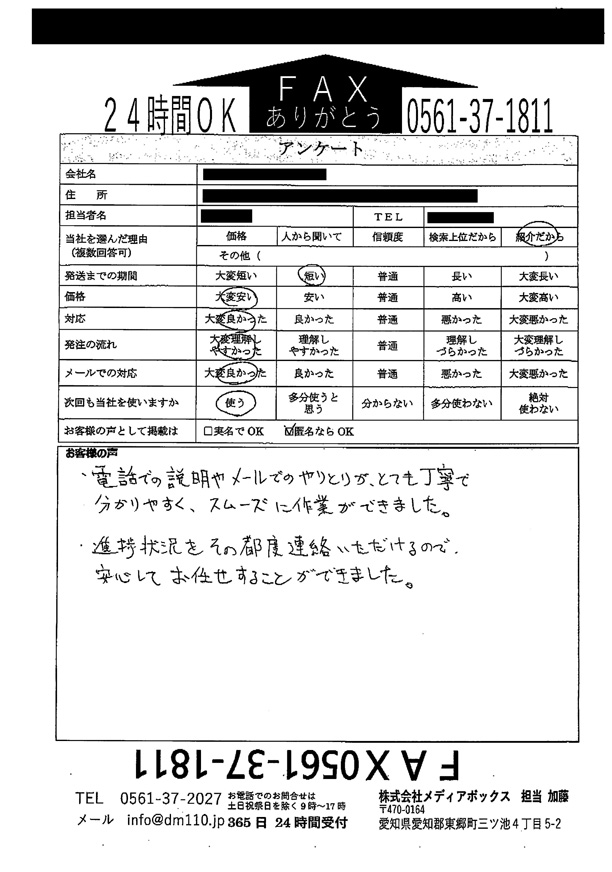 FAX
24時間OK ありがとう 0561-37-1811
アンケート
会社名
住 所
担当者名 TEL
当社を選んだ理由 価格 人から聞いて 信頼度 検索上位だから 紹介だから
(複数回答可) その他 ( )
発送までの期間 大変短い 短い 普通 長い 大変長い
価格 大変安い 安い 普通 高い 大変高い
対応 大変良かった 良かった 普通 悪かった 大変悪かった
発注の流れ 大変理解しやすかった 理解しやすかった 普通 理解しづらかった 大変理解しづらかった
メールでの対応 大変良かった 良かった 普通 悪かった 大変悪かった
次回も当社を使いますか 使う 多分使うと思う 分からない 多分使わない 絶対使わない
お客様の声として掲載は □実名でOK ☑匿名ならOK
お客様の声
・電話での説明やメールでのやりとりが、とても丁寧で
分かりやすく、スムーズに作業ができました。
・進捗状況をその都度連絡いただけるので、
安心してお任せすることができました。
FAX0561-37-1811
TEL 0561-37-2027 お電話でのお問合せは
土日祝祭日を除く9時～17時
メール info@dm110.jp 365日 24時間受付
株式会社メディアボックス 担当 加藤
〒470-0164
愛知県愛知郡東郷町三ツ池4丁目5-2